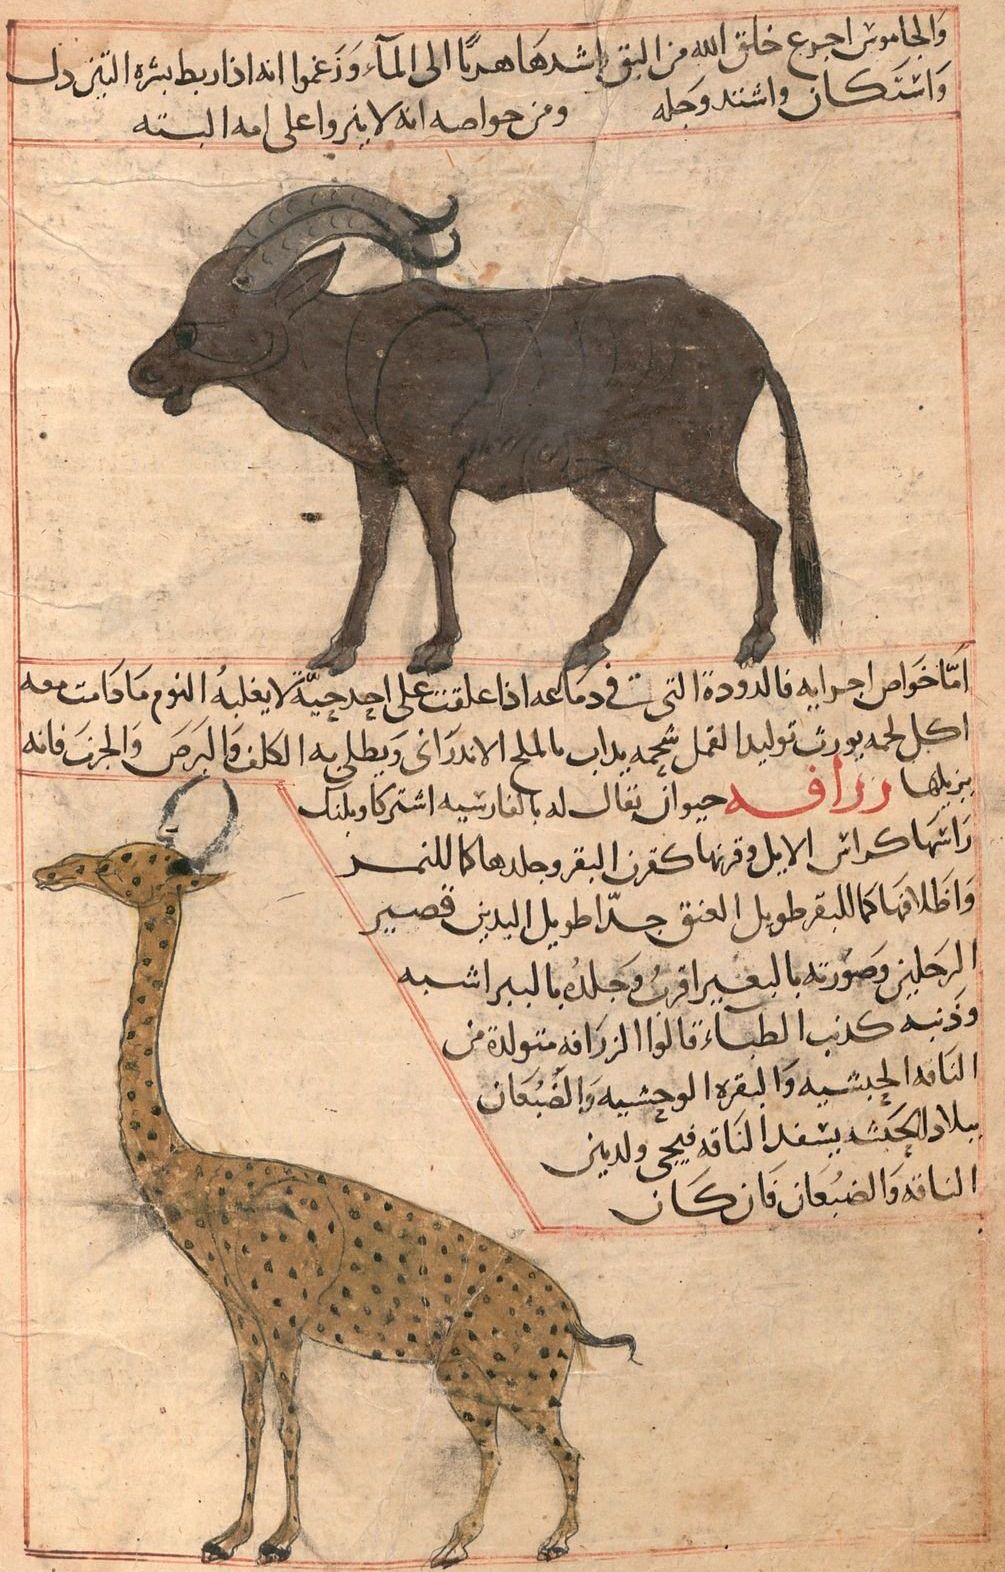 والجاموس اجزع خلق الله من البق واشدها هربًا الى المآء وَزَعموا انه اذا ربط بشره التين دل
وَاستكان واشتد وجله ومن خواصه انه لا ينزوا على امه البته
امّا خَواص اجزايه فالدودة التي في دماغه اذا علقت على احد حيّة لا يغلبهُ النوم مَا دَامت معه
اكل لحمه يورث توليد القمل شحمه يداب بالملح الاندَرَانى وَيطلى به الكلف وَالبَرَصَ وَالجرَبَ فانه
يزيلها زرافه حيوان يقال له بالفارسيه اشتر كاو بلنك
رَاسُهَا كراس الايل وقرنها كقرن البقر وجلدها كما للنمر
وَاظَلافهَا كما للبقر طويل العنق جدّا طويل اليدين قصير
الرجلين وَصُورته بالبعير اقرب وَجَلدُه بالببر اشبه
وَذَنبه كذنب الظباء قالوا الزرَافه متولدة من
النَاقه الحبشيه وَالبقره الوحشيه وَالضُبُعَان
ببلاد الحَبشه يسفد النَاقه فيجى ولد بين
الناقه وَالضبُعان فَان كَان